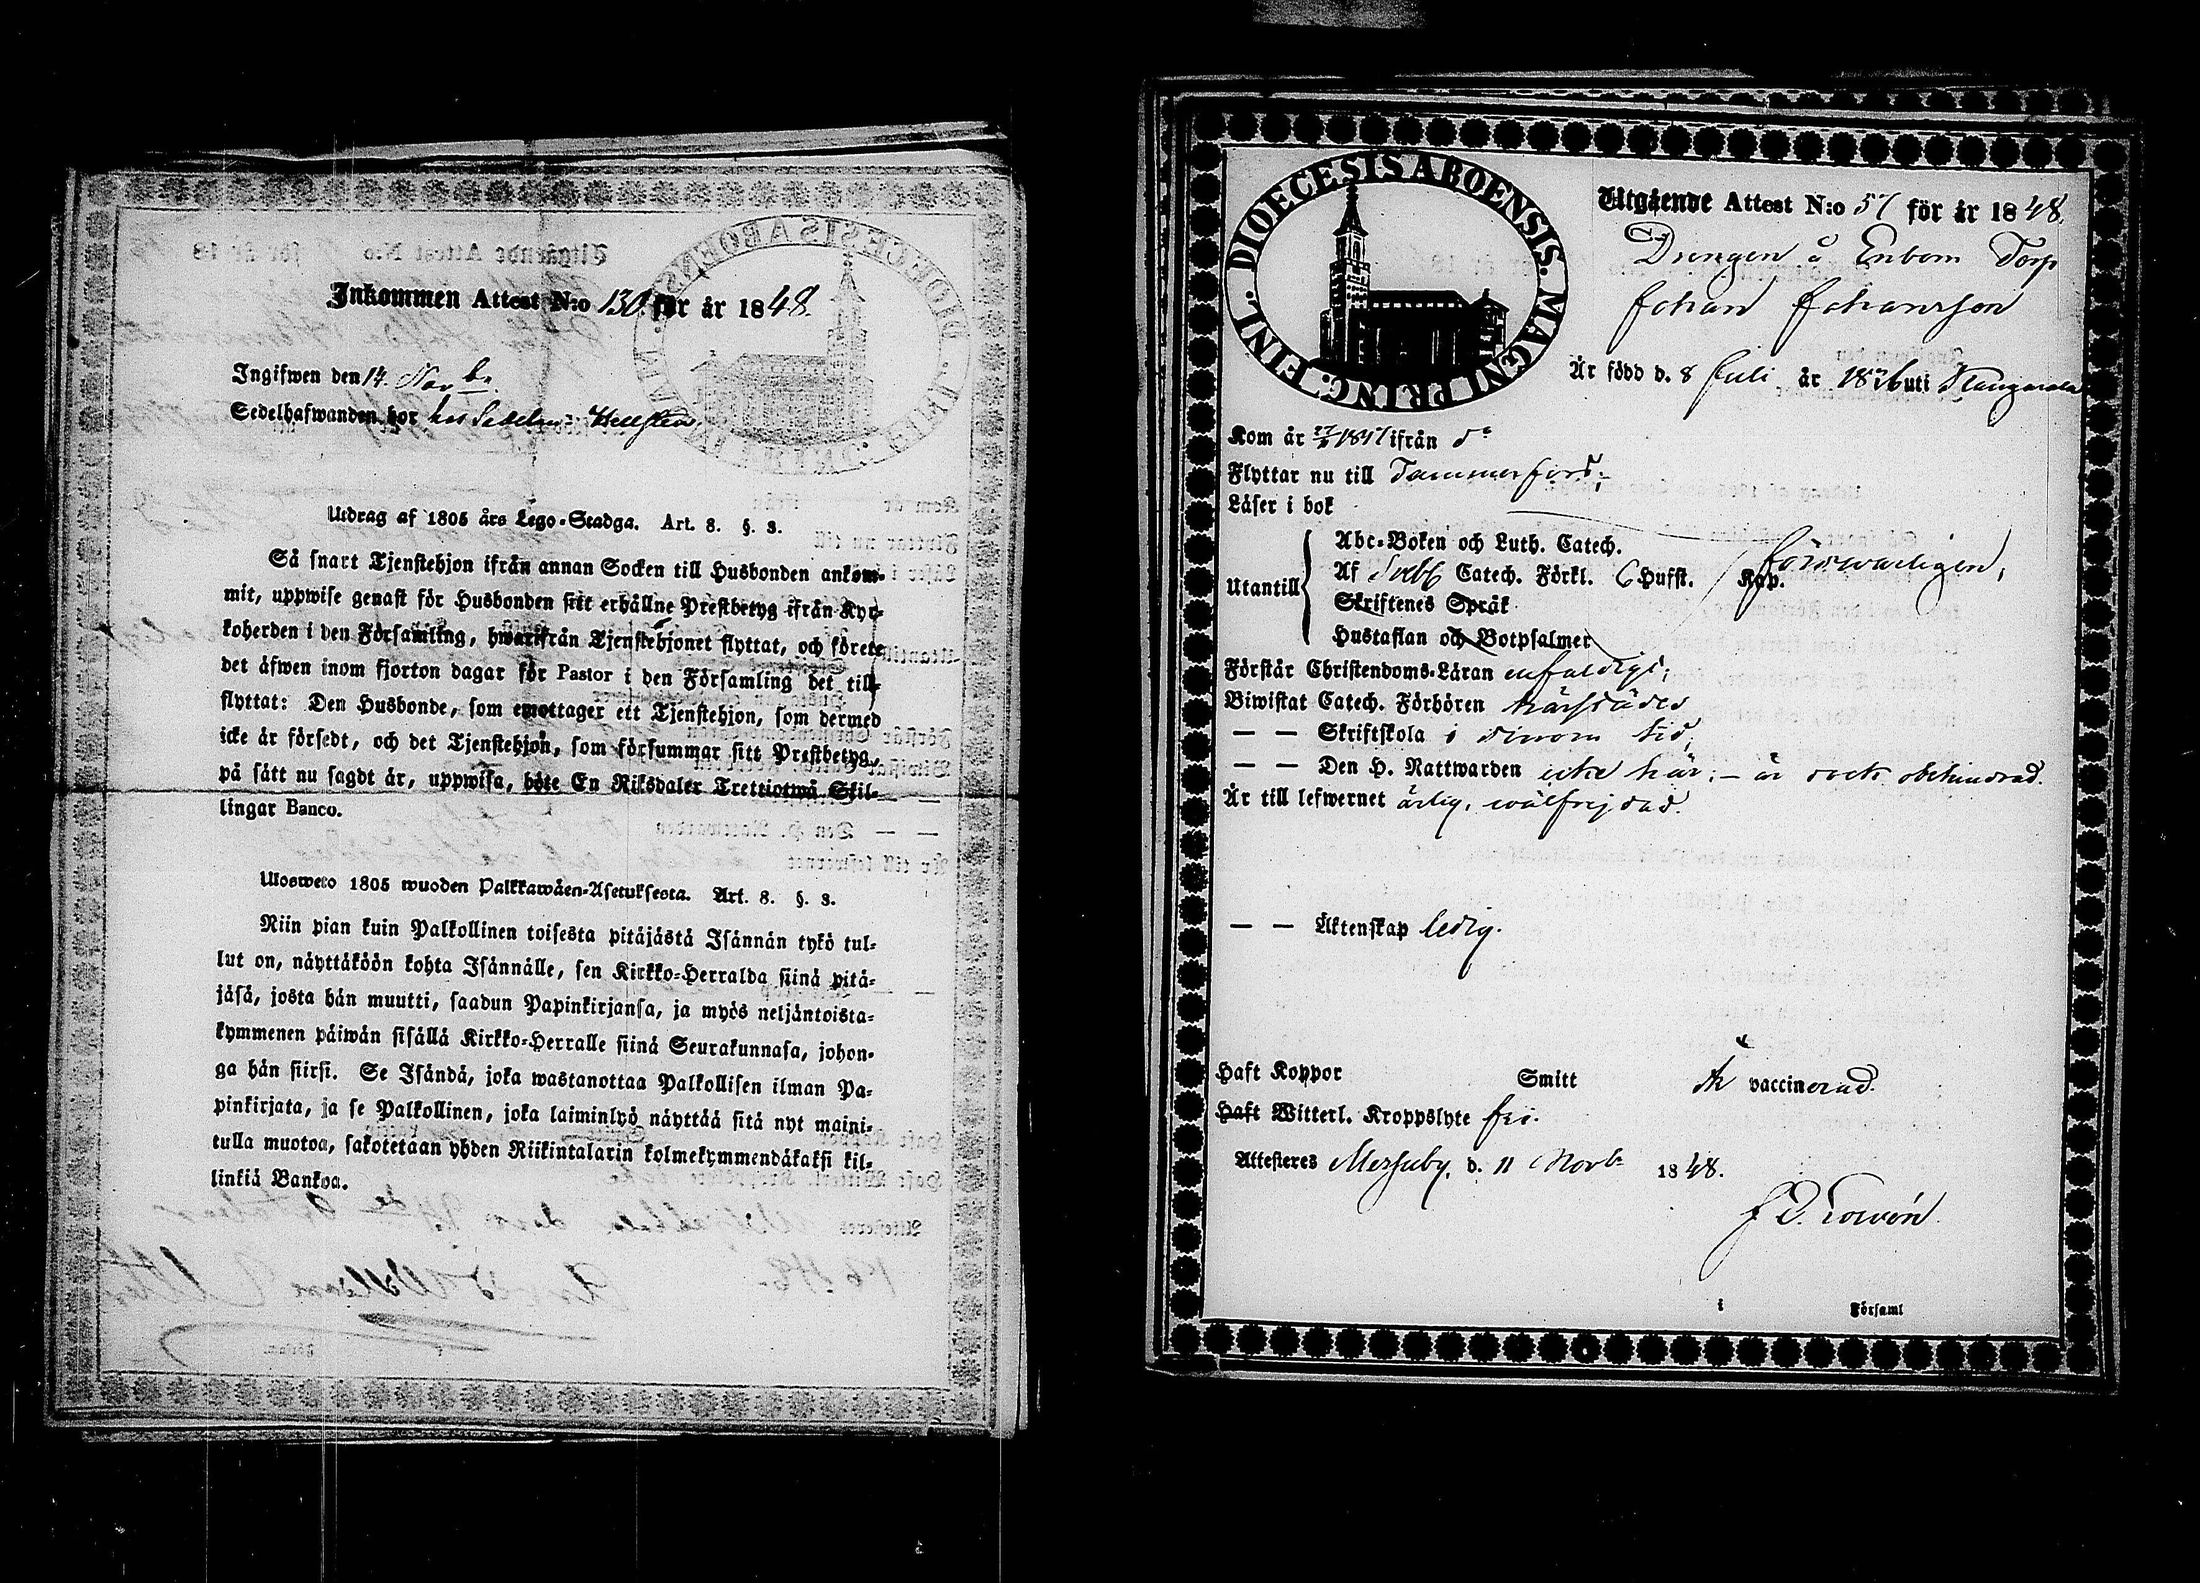 Inkommen Attest N:o 130. för år 1848.
Ingifwen den 14. Novbr.
Sedelhafwanden bor hos Hellsten.
Utdrag af 1805 års Lego-Stadga. Art. 8. §. 3.
Så snart Tjenstehjon ifrån annan Socken till Husbonden ankom-
mit, uppwise genast för Husbonden sitt erhållne Prestbetyg ifrån Kyr-
koherden i den Församling, hwarifrån Tjenstehjonet flyttat, och förete
det äfwen inom fjorton dagar för Pastor i den Församling det till-
flyttat: Den Husbonde, som emottager ett Tjenstehjon, som dermed
icke är försedt, och det Tjenstehjon, som försummar sitt Prestbetyg,
på sätt nu sagdt är, uppwisa, böte En Riksdaler Trettiotwå Skil-
lingar Banco.
Ulosweto 1805 wuoden Palkkawäen-Asetuksesta. Art. 8. §. 3.
Niin pian kuin Palkollinen toisesta pitäjästä Isännän tykö tul-
lut on, näyttäköön kohta Isännälle, sen Kirkko-Herralda siinä pitä-
jäsä, josta hän muutti, saadun Papinkirjansa, ja myös neljäntoista-
kymmenen päiwän sisällä Kirkko-Herralle siinä Seurakunnasa, johon-
ga hän siirsi. Se Isändä, joka wastanottaa Palkollisen ilman Pa-
pinkirjata, ja se Palkollinen, joka laiminlyö näyttää sitä nyt maini-
tulla muotoa, sakotetaan yhden Riikintalarin kolmekymmendäkaksi kil-
linkiä Bankoa.
DIOECESIS ABOENSIS. MAGNI PRINC. FINL.
Utgående Attest N:o 57 för år 1848.
Drengen å Enbom Torp
Johan Johansson
Är född d. 8 Juli år 1826 uti
Kom år 1847 ifrån do
Flyttar nu till Tammerfors;
Läser i bok
Abc-Boken och Luth. Catech.
Utantill Af Sveb Catech. Förkl. 6 Hufst. Kap. försvarligen,
Skriftenes Språk
Hustaflan och Botpsalmer
Förstår Christendoms-Läran enfaldigt;
Biwistat Catech. Förhören härstädes
— — Skriftskola i sinom tid;
— — Den H. Nattwarden icke här; – är dock obehindrad.
Är till lefwernet ärlig, wälfrejdad.
— — Äktenskap ledig.
Haft Koppor Smitt Är vaccinerad.
Haft Witterl. Kroppslyte fri.
Attesteres Messuby, d. 11 Novbr 1848.
i Församl